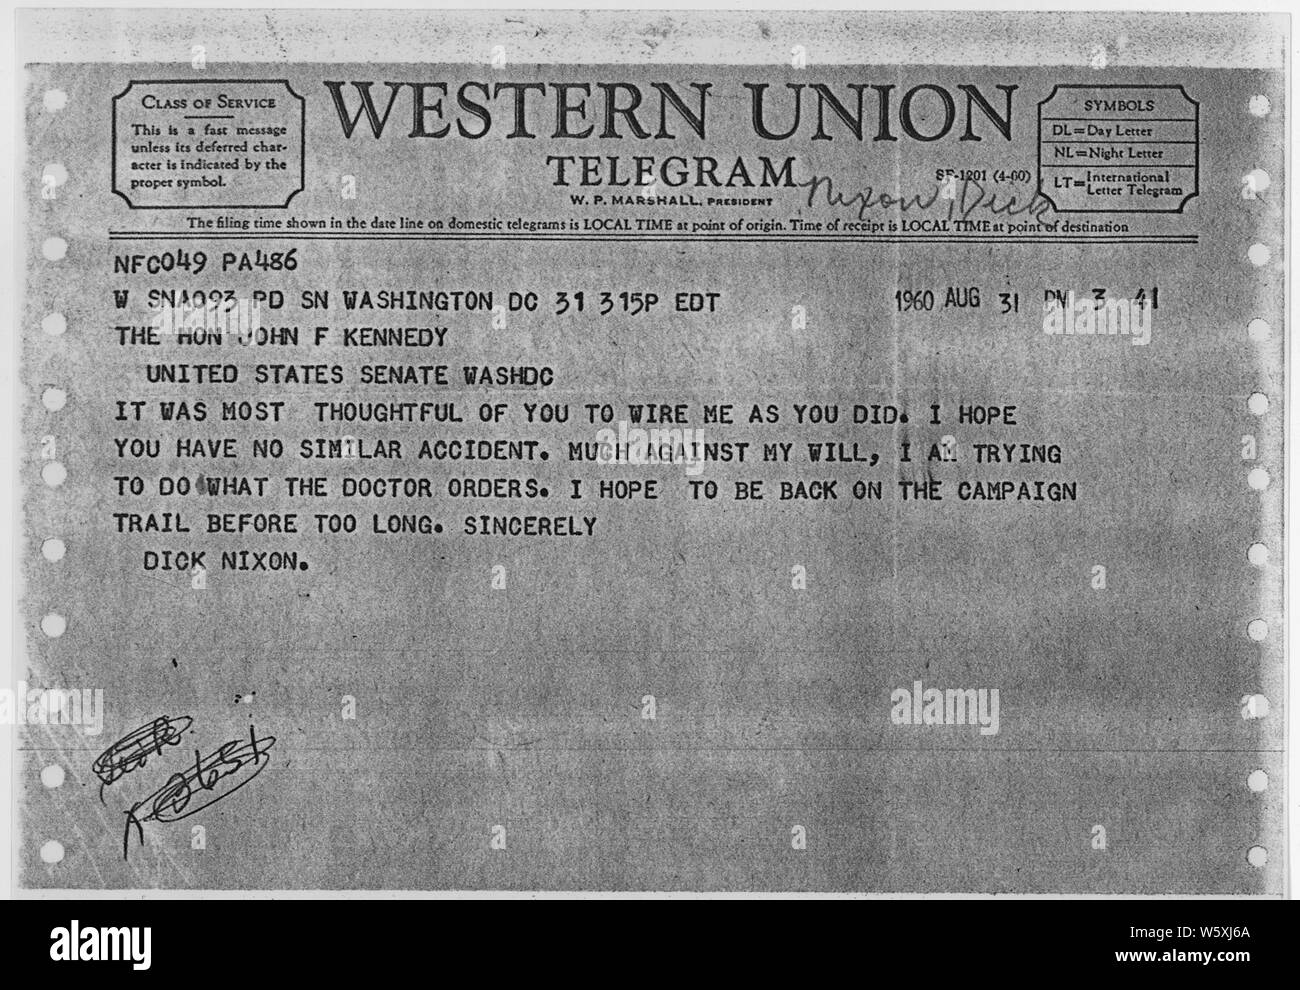 CLASS OF SERVICE
This is a fast message
unless its deferred char-
acter is indicated by the
proper symbol.
WESTERN UNION
TELEGRAM
W. P. MARSHALL, PRESIDENT
SF-1201 (4-60)
Nixon, Dick
SYMBOLS
DL=Day Letter
NL=Night Letter
LT=International Letter Telegram
The filing time shown in the date line on domestic telegrams is LOCAL TIME at point of origin. Time of receipt is LOCAL TIME at point of destination
NFC049 PA486
W SNA093 PD SN WASHINGTON DC 31 315P EDT
1960 AUG 31 PM 3 41
THE HON JOHN F KENNEDY
UNITED STATES SENATE WASHDC
IT WAS MOST THOUGHTFUL OF YOU TO WIRE ME AS YOU DID. I HOPE
YOU HAVE NO SIMILAR ACCIDENT. MUCH AGAINST MY WILL, I AM TRYING
TO DO WHAT THE DOCTOR ORDERS. I HOPE TO BE BACK ON THE CAMPAIGN
TRAIL BEFORE TOO LONG. SINCERELY
DICK NIXON.
alamy
alamy
alamy
Image ID: W5XJ6A
www.alamy.com